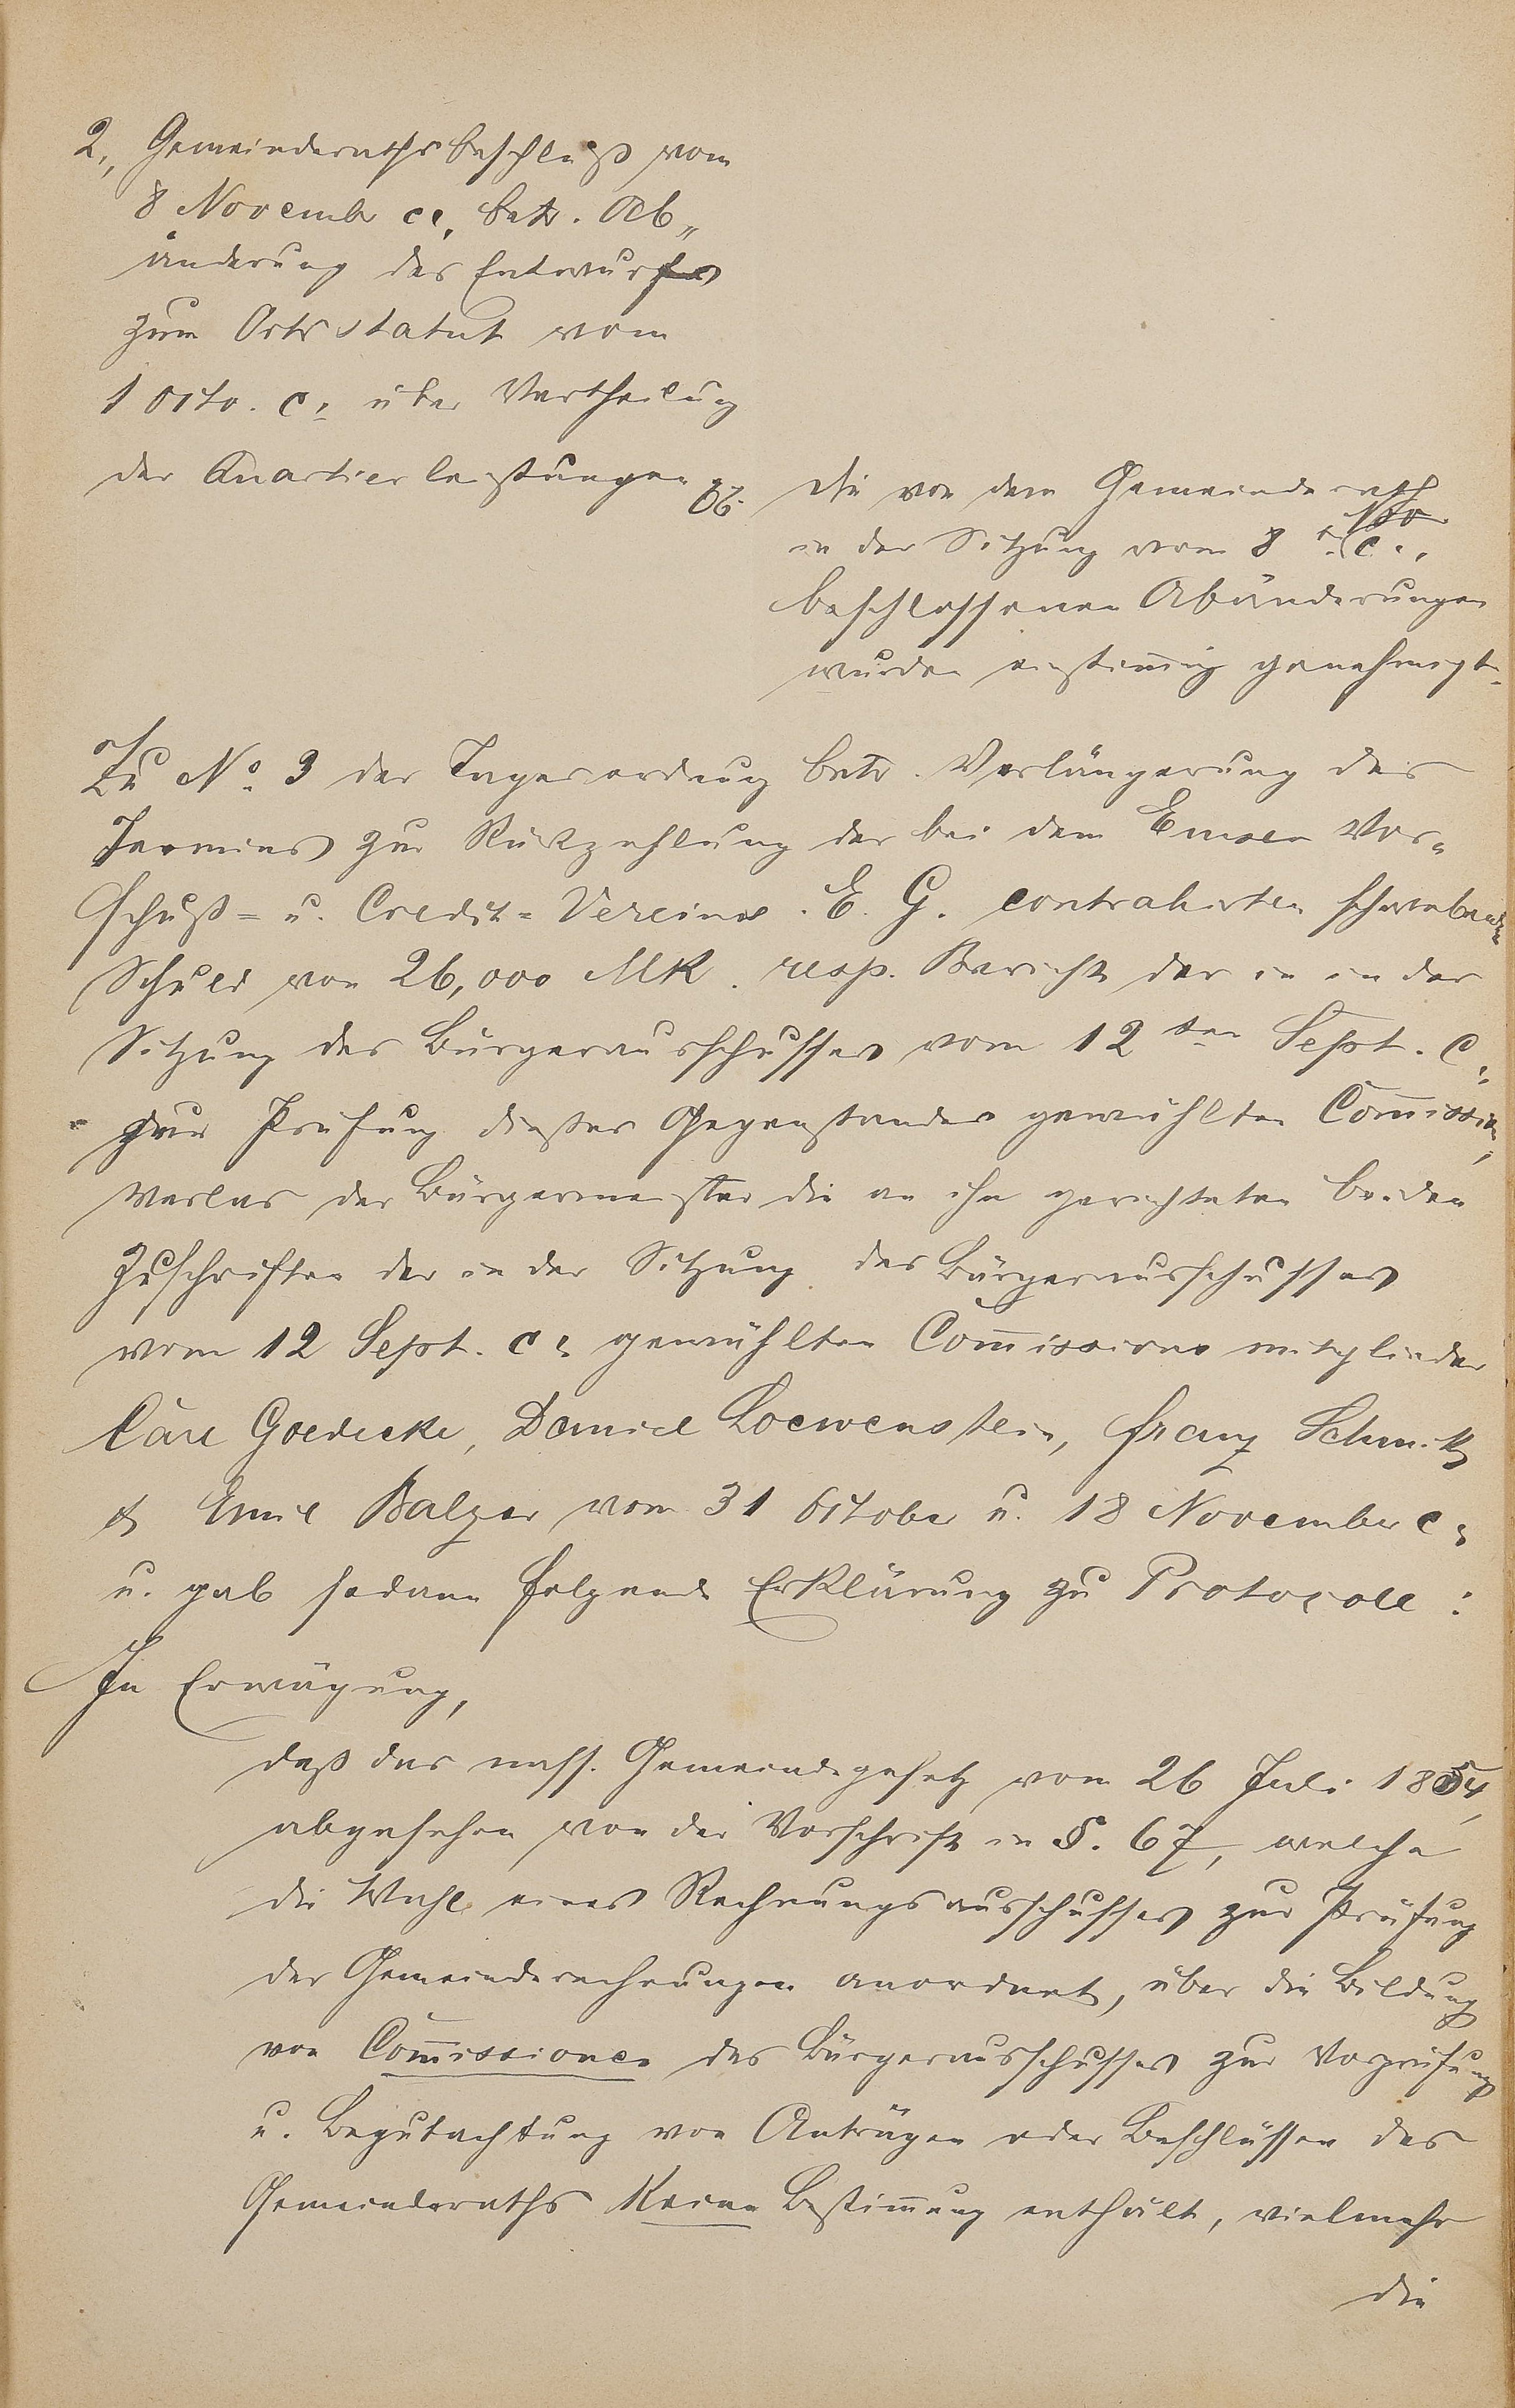 2., Gemeinderathsbeschluß vom
8 November cr. betr. Ab„
änderung des Entwurfes
zum Ortsstatut vom
1 Octo. c. über Vertheilung
der Quartierleistungen
Die von dem Gemeinderath
in der Sitzung vom 8 t. Nov. c.,
beschlossenen Abänderungen
wurden einstimmig genehmigt.
Zu No. 3 der Tagesordnung betr. Verlängerung des
Termines zur Rückzahlung der bei dem Emser Vor=
schuß= u. Credit=Vereins. E. G. contrahirten schwebenden
Schuld von 26,000 MK. resp. Bericht der in in der
Sitzung des Bürgerausschusses vom 12 ten Sept. c.
zur Prüfung dießes Gegenstandes gewählten Commission,
verlas der Bürgermeister die an ihn gerichteten beiden
Zuschriften der in der Sitzung des Bürgerausschusses
vom 12 Sept. c. gewählten Commissions mitglieder
Carl Goedecke, Daniel Loewenstein, Franz Schmitz
& Emil Balzer vom 31 October u. 18 November c.
u. gab sodann folgende Erklärung zu Protocoll:
In Erwägung,
daß das nass. Gemeindegesetz vom 26 Juli 1854,
abgesehen von der Vorschrift in §. 67, welche
die Wahl eines Rechnungsausschusses zur Prüfung
der Gemeinderechnungen anordnet, über die Bildung
von Commissionen des Bürgerausschusses zur Vorprüfung
u. Begutachtung von Anträgen oder Beschlüssen des
Gemeinderaths Keine Bestimmung enthält, vielmehr
die